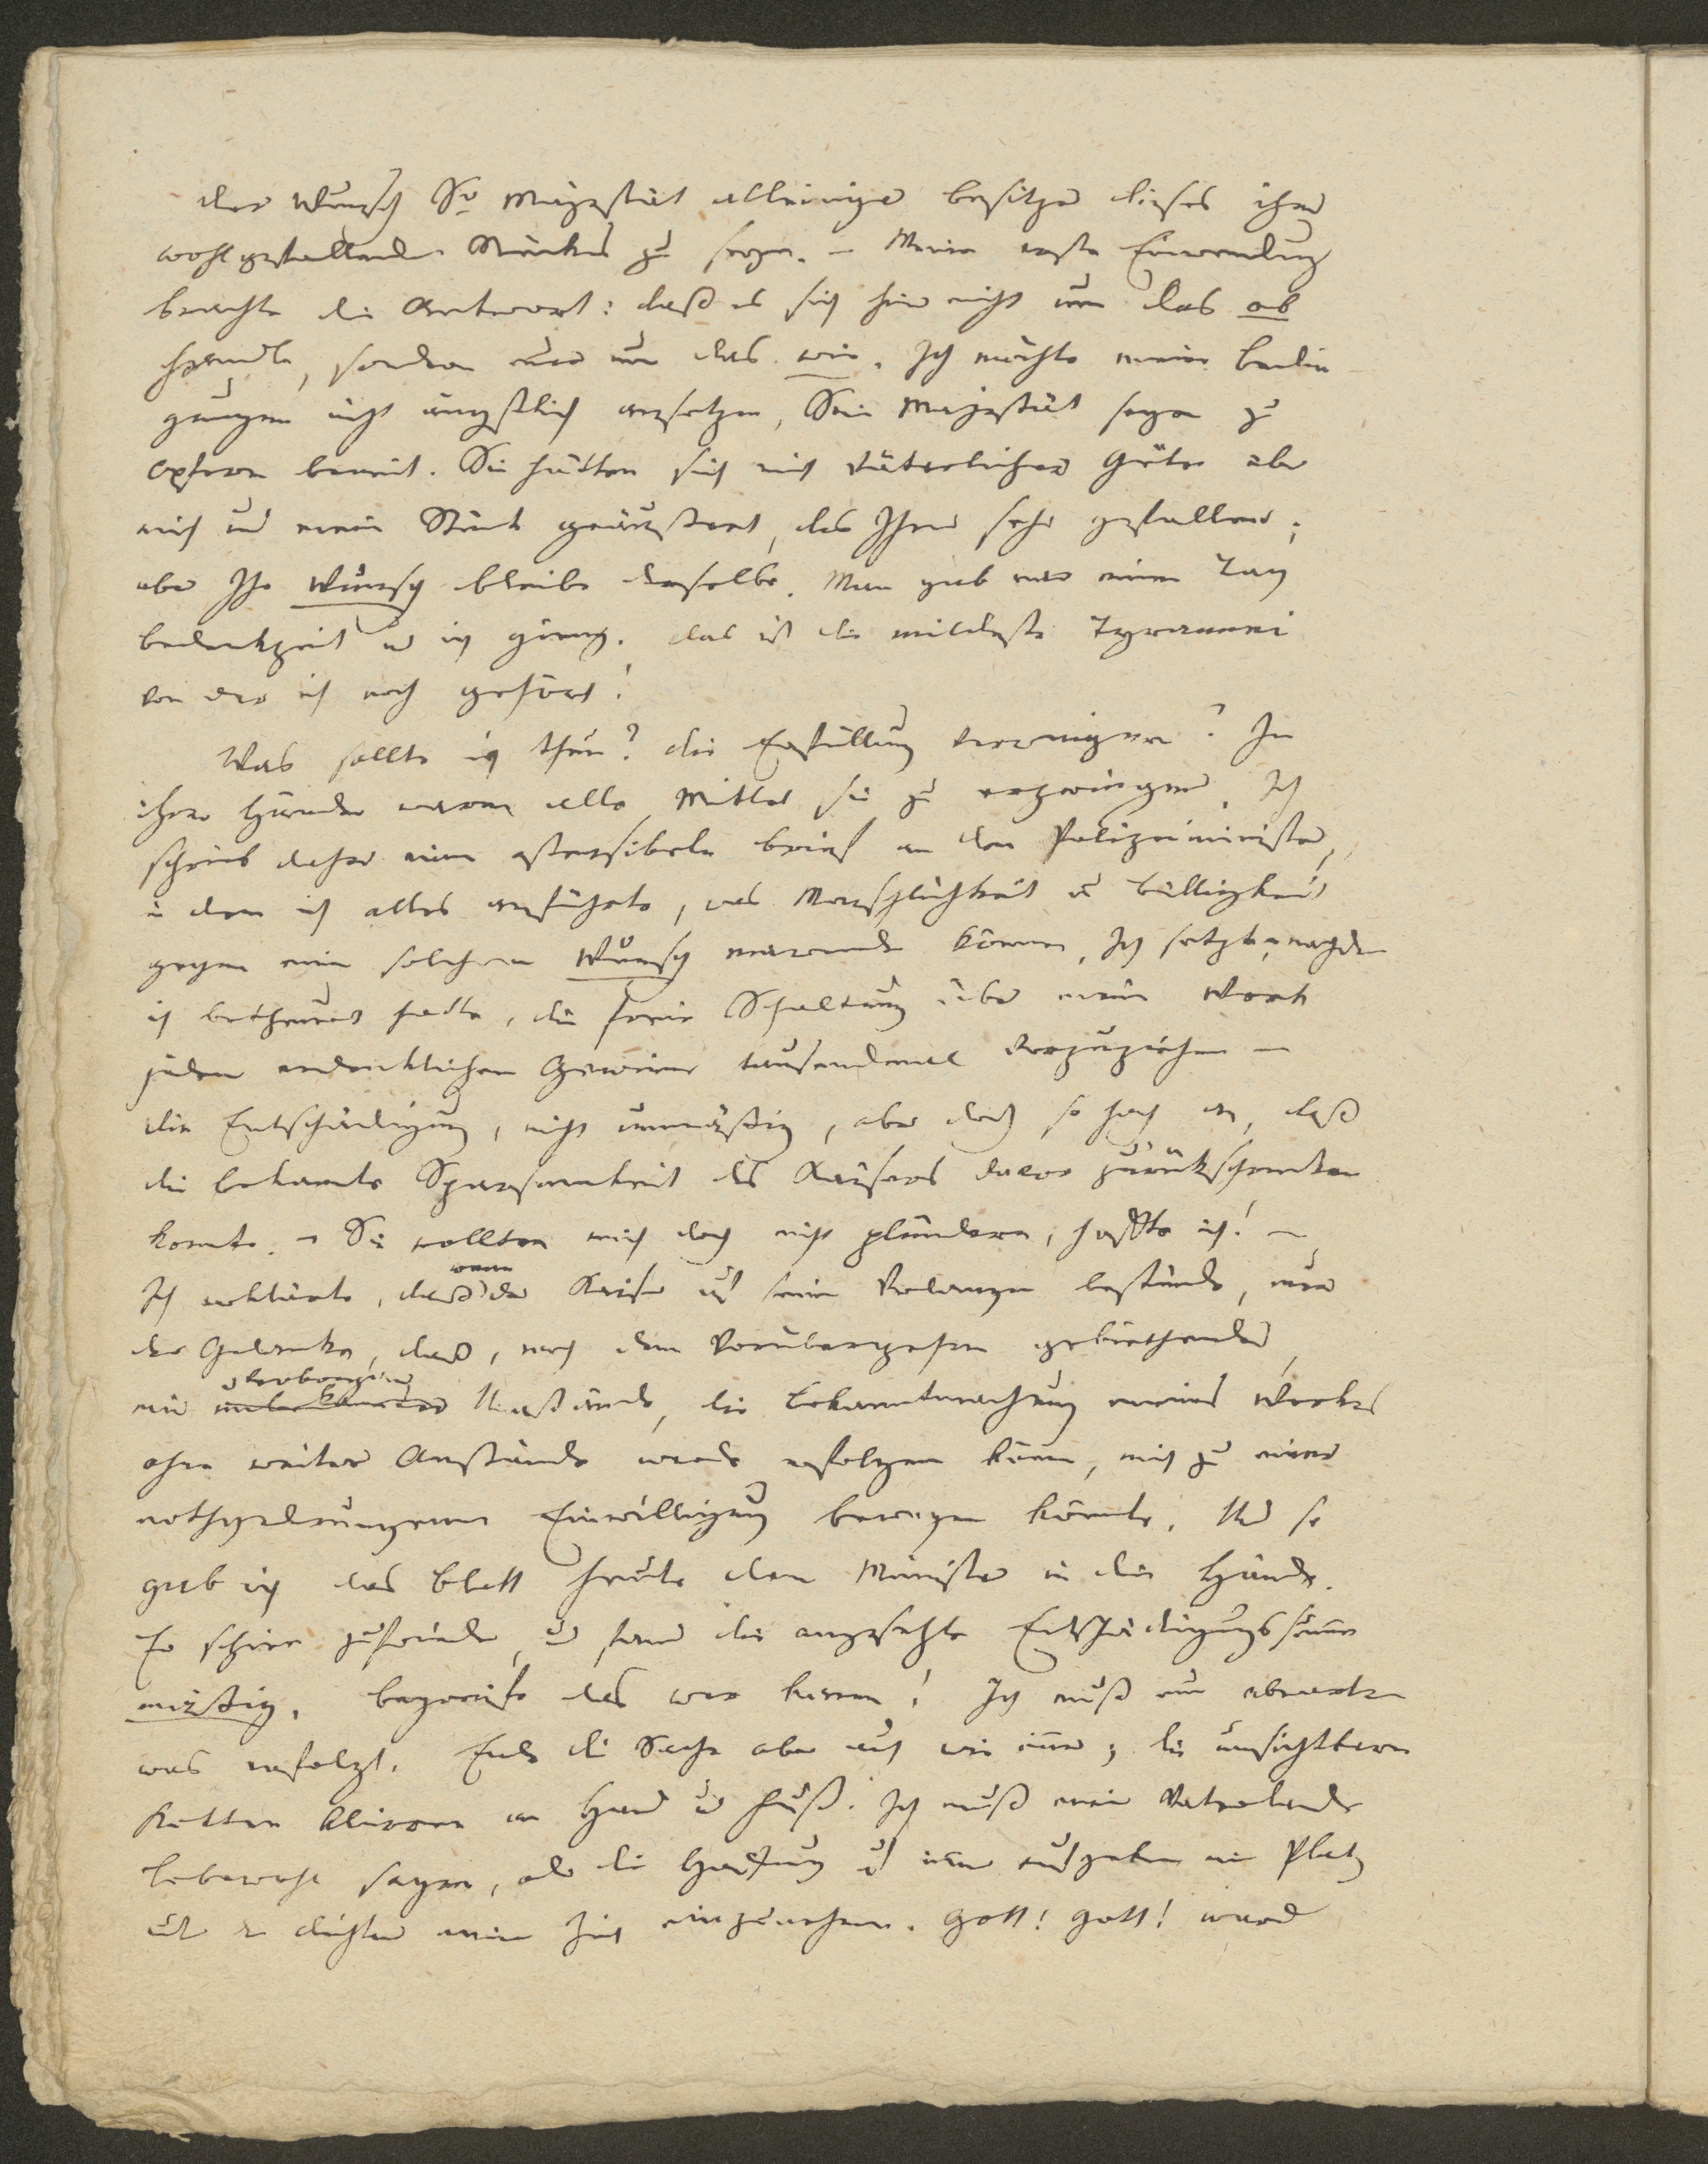 der Wunsch Sr Majestät alleiniger Besitzer dieses ihm
wohlgefallenden Stückes zu seyn. – Meine erste Einwendung
brachte die Antwort: daß es sich hier nicht um das ob
handle, sondern nur um das wie. Ich möchte meine Bedin-
gungen nicht ängstlich ansetzen, Seine Majestät seyen zu
Opfern bereit. Sie hätten sich mit väterlicher Güte über
mich und mein Stück geäußert, das Ihnen sehr gefallen;
aber Ihr Wunsch bleibe derselbe. Man gab mir einen Tag
Bedenkzeit u ich gieng. Das ist die mildeste Tyrannei
von der ich noch gehört!
Was sollte ich thun? die Erfüllung verweigern? In
ihren Händen waren alle Mittel sie zu erzwingen. Ich
schrieb daher einen ostensibeln Brief an den Polizeiminister,
in dem ich alles anführte, was Menschlichkeit u Billigkeit
gegen einen solchen Wunsch einwenden können, Ich setzte, nachdem
ich betheuert hatte, die freie Schaltung über mein Werk
jedem erdenklichen Gewinn tausendmal vorzuziehen –
die Entschädigung, nicht unmäßig, aber doch so hoch an, daß
die bekannte Sparsamkeit des Kaisers davor zurückschrecken
konnte. – Sie wollten mich doch nicht plündern, hoffte ich! –
Ich erklärte, daß wenn der Kaiser auf seinem Verlangen bestünde, nur
der Gedanke, daß, nach dem Vorübergehen gebiethender
mir unbekannter verborgener Umstände, die Bekanntmachung meines Werkes
ohne weitere Anstände werde erfolgen können, mich zu einer
nothgedrungenen Einwilligung bewegen könnte. Und so
gab ich das Blatt heute dem Minister in die Hände.
Er schien zufrieden, und fand die angesetzte Entschädigungssumme
mäßig. begreife das wer kann! Ich muß nun abwarten
was erfolgt. Ende die Sache aber auch wie immer; die unsichtbaren
Ketten klirren an Hand und Fuß. Ich muß meinem Vaterlande
Lebewohl sagen, oder die Hoffnung auf immer aufgeben einen Platz
unter den Dichtern meiner Zeit einzunehmen. Gott! Gott! ward